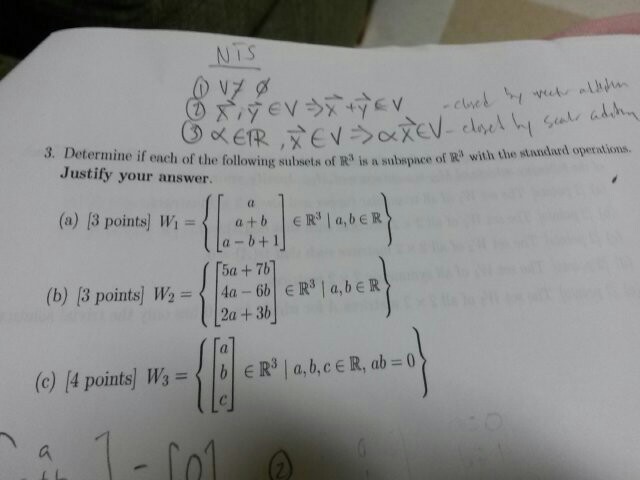 NTS
① V ≠ ∅
② x⃗, y⃗ ∈ V ⇒ x⃗ + y⃗ ∈ V - closed by vector addition
③ α ∈ ℝ, x⃗ ∈ V ⇒ αx⃗ ∈ V - closed by scalar
3. Determine if each of the following subsets of ℝ³ is a subspace of ℝ³ with the standard operations.
Justify your answer.
(a) [3 points] W₁ = { [a; a + b; a − b + 1] ∈ ℝ³ | a, b ∈ ℝ }
(b) [3 points] W₂ = { [5a + 7b; 4a − 6b; 2a + 3b] ∈ ℝ³ | a, b ∈ ℝ }
(c) [4 points] W₃ = { [a; b; c] ∈ ℝ³ | a, b, c ∈ ℝ, ab = 0 }
a ] = [0] ②